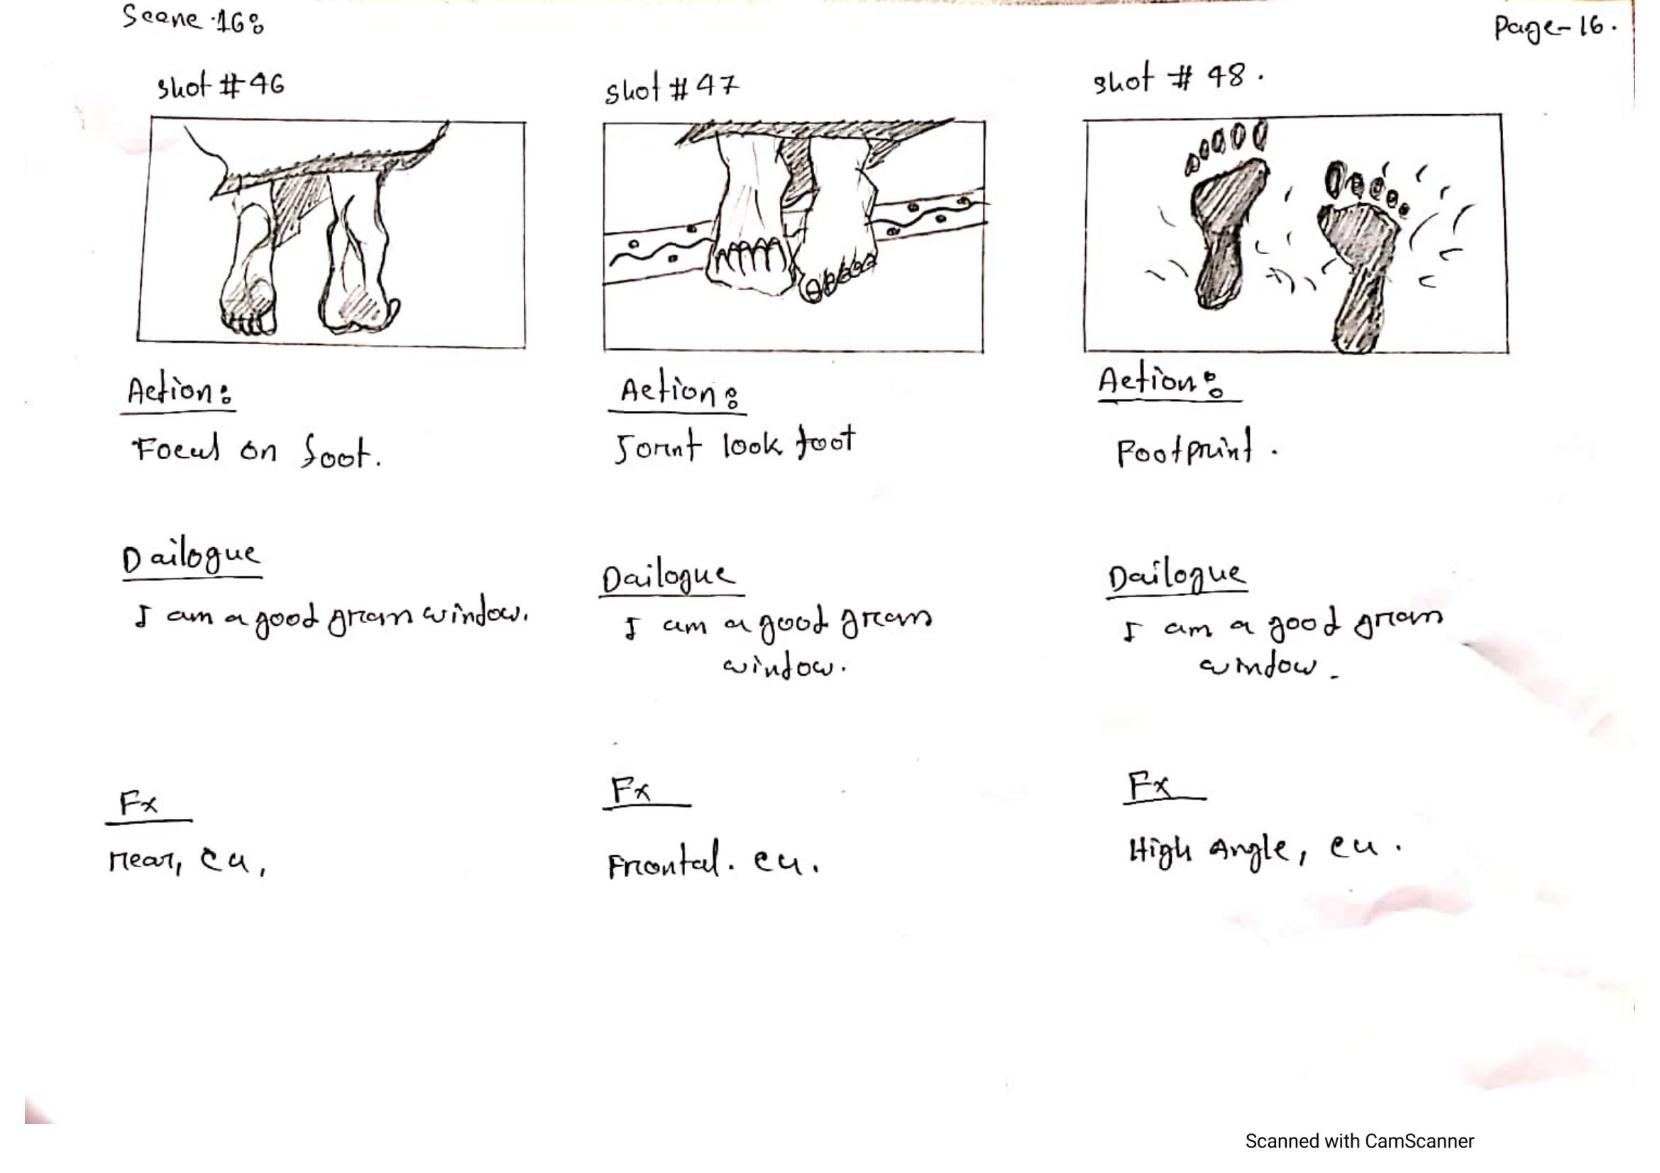 Scene 16:
Page-16.
Shot #46
Shot #47
Shot # 48.
Action:
Focus on foot.
Action:
look foot
Action:
Footprint.
Dailogue
I am a good window.
Dailogue
I am a good
window.
Dailogue
I am a good
window.
Fx
rear, cu,
Fx
Frontal. cu.
Fx
High Angle, cu.
Scanned with CamScanner